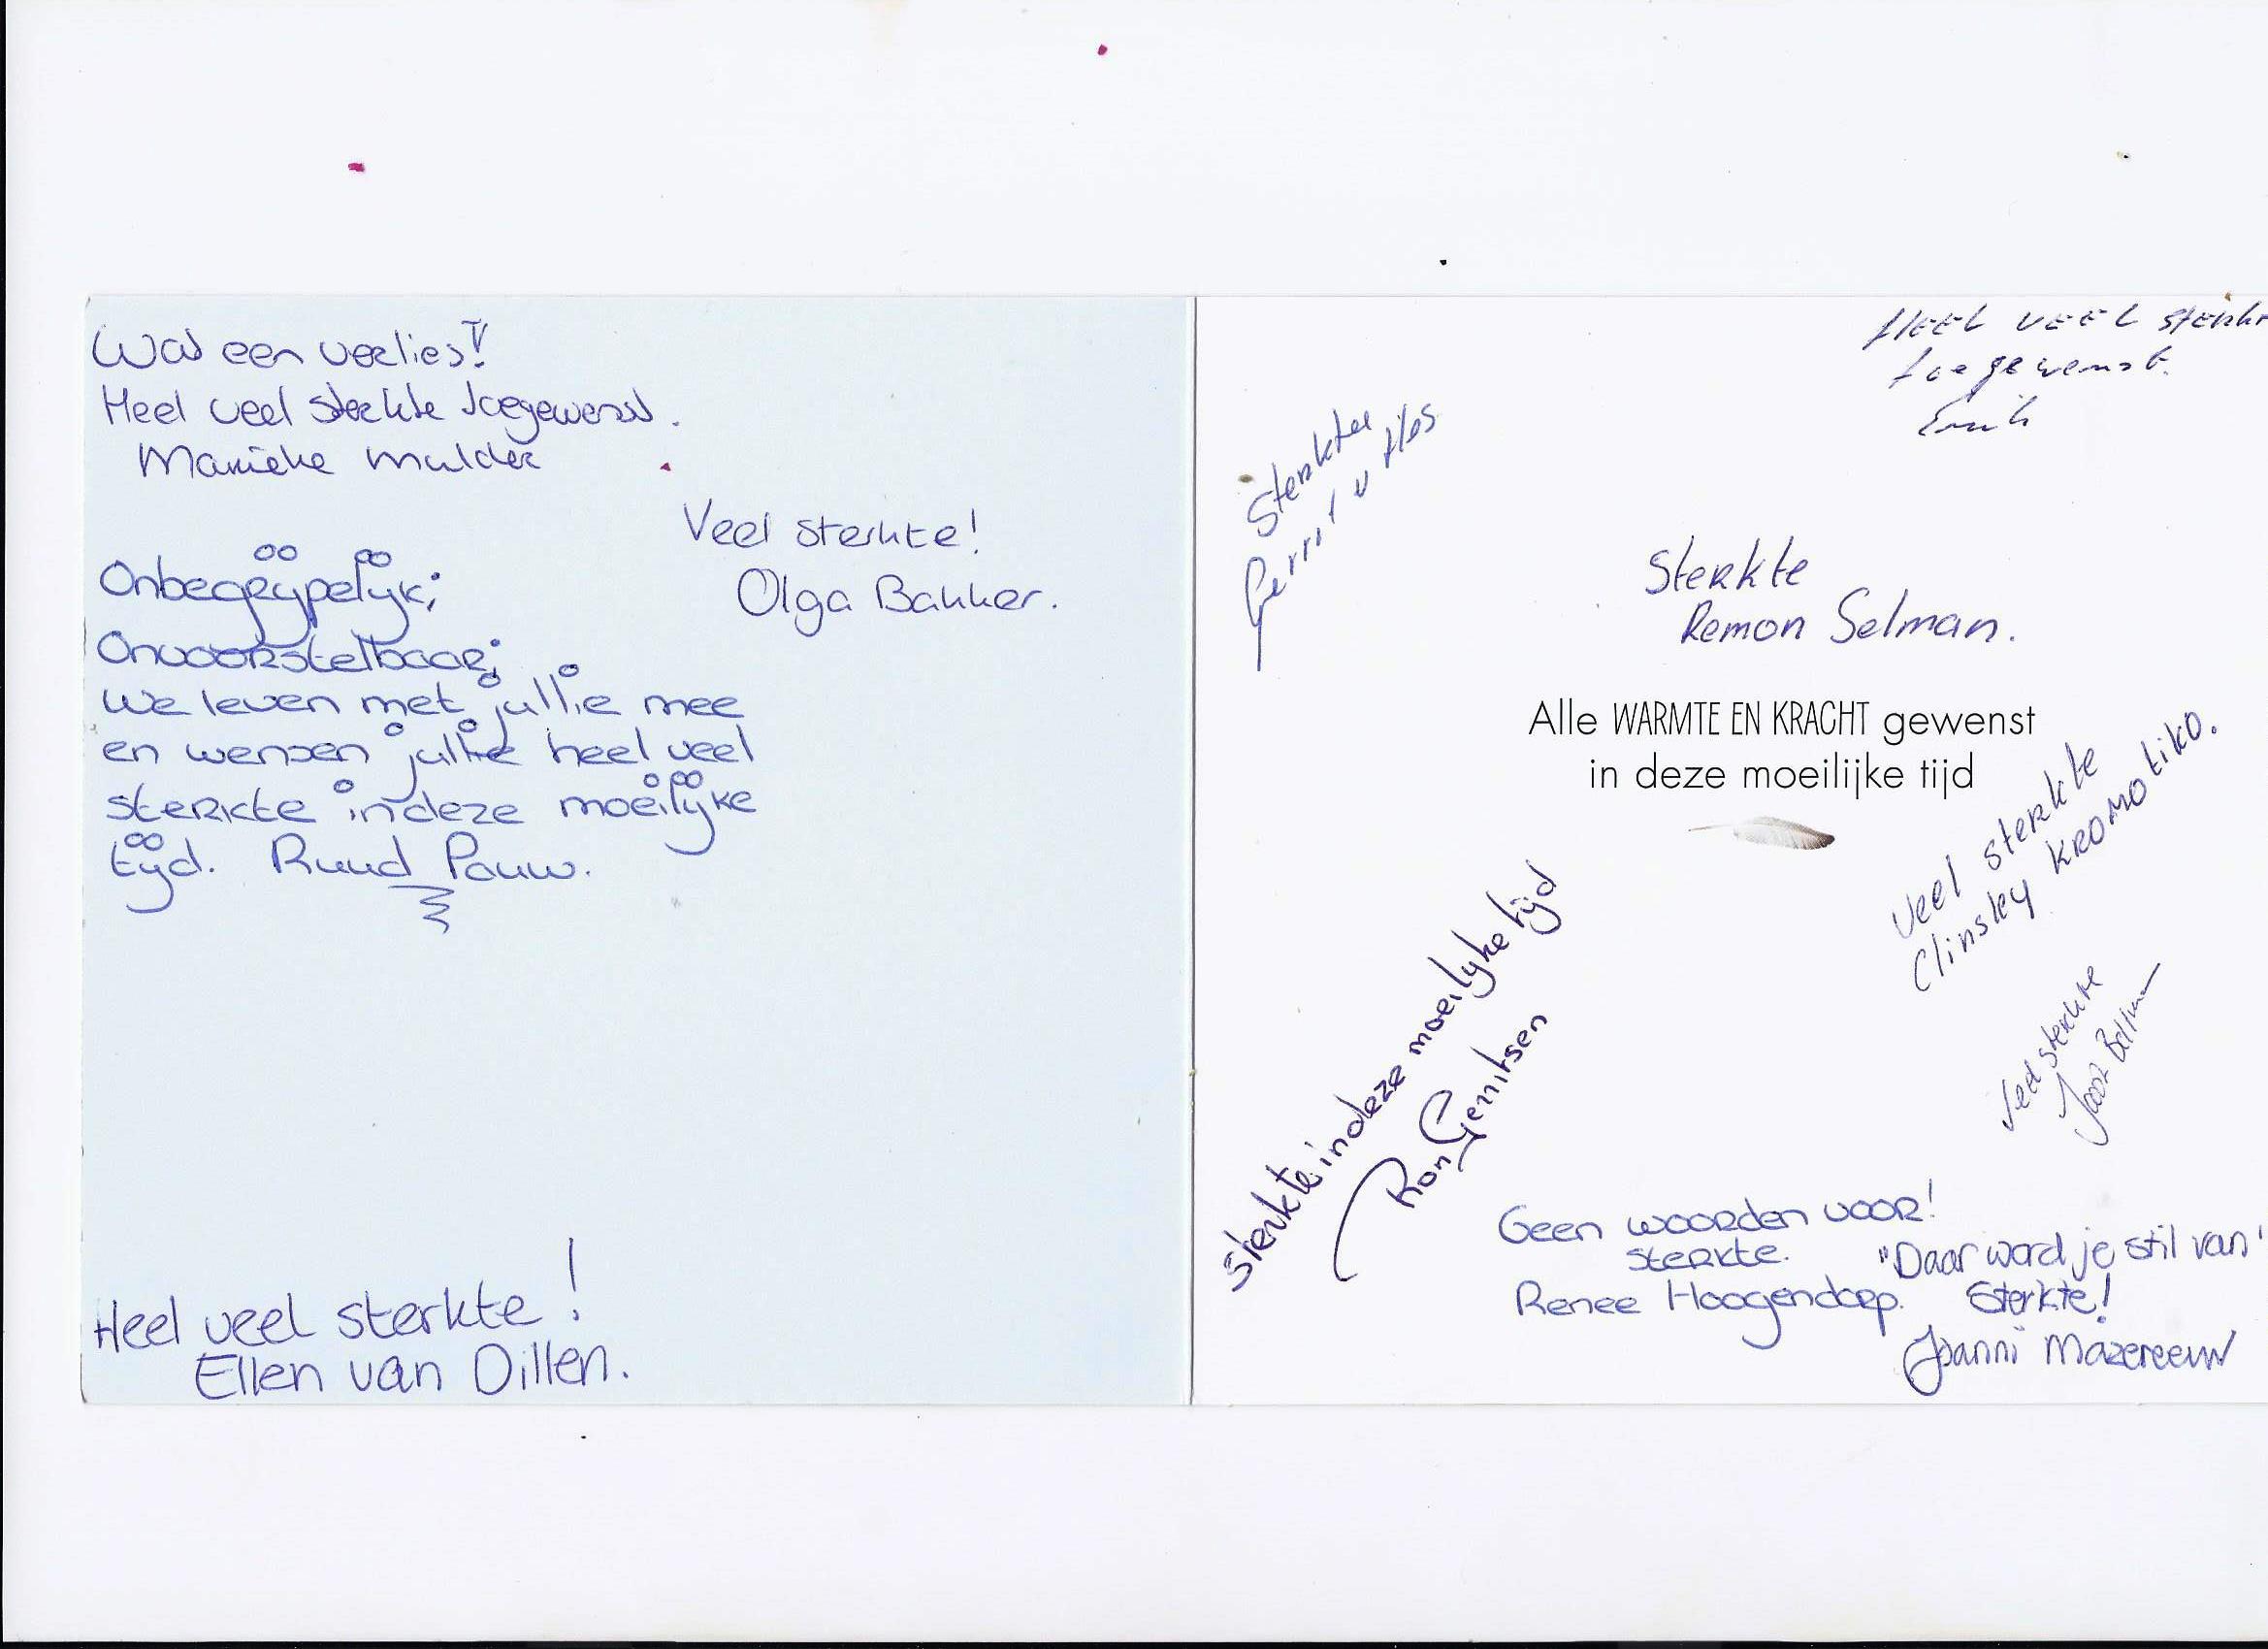 Wat een verlies!!
Heel veel sterkte toegewenst.
Marieke Mulder
Veel sterkte!
Olga Bakker.
Onbegrijpelijk;
Onvoorstelbaar;
We leven met jullie mee
en wensen jullie heel veel
sterkte in deze moeilijke
tijd. Ruud Pauw.
Heel veel sterkte!
Ellen van Dillen.
HEEL VEEL sterk
toegewenst.
Sterkte
Gerrit v
Sterkte
Remon Selman.
Alle WARMTE EN KRACHT gewenst
in deze moeilijke tijd
Veel sterkte
Clinsley KROMOtiko.
Sterkte in deze moeilijke tijd
Ron Gerritsen
Veel sterkte
Geen woorden voor!
sterkte.
Renee Hoogendorp.
"Daar word je stil van"
Sterkte!
Joanni Mazereeuw